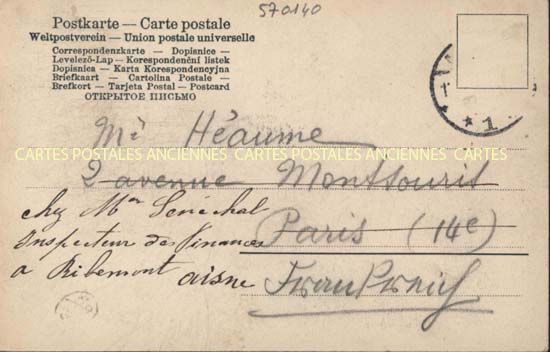 570140
Postkarte — Carte postale
Weltpostverein — Union postale universelle
Correspondenzkarte — Dopisnice —
Levelező-Lap — Korespondenční listek
Dopisnica — Karta Korespondencyjna
Briefkaart — Cartolina Postale —
Brefkort — Tarjeta Postal — Postcard
ОТКРЫТОЕ ПИСЬМО
* 1
Mr Héaume
CARTES POSTALES ANCIENNES CARTES POSTALES ANCIENNES CARTES
2 avenue Montsouris
chez Mr Sénéchal
Paris (14e)
Inspecteur des Finances
a Ribemont aisne
Frankreich